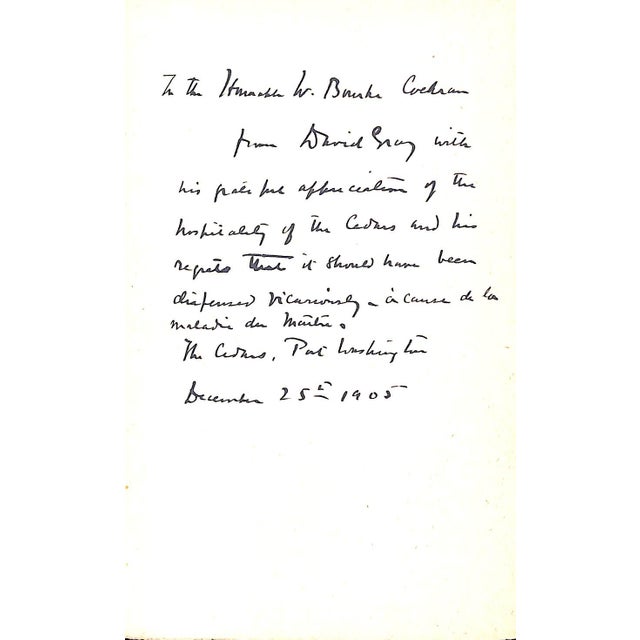 To the Honorable W. Bourke Cockran
from David Gray with
his grateful appreciation of the
hospitality of the Cedars and his
regrets that it should have been
dispensed vicariously – à cause de la
maladie du Maître.
The Cedars, Port Washington
December 25th 1905